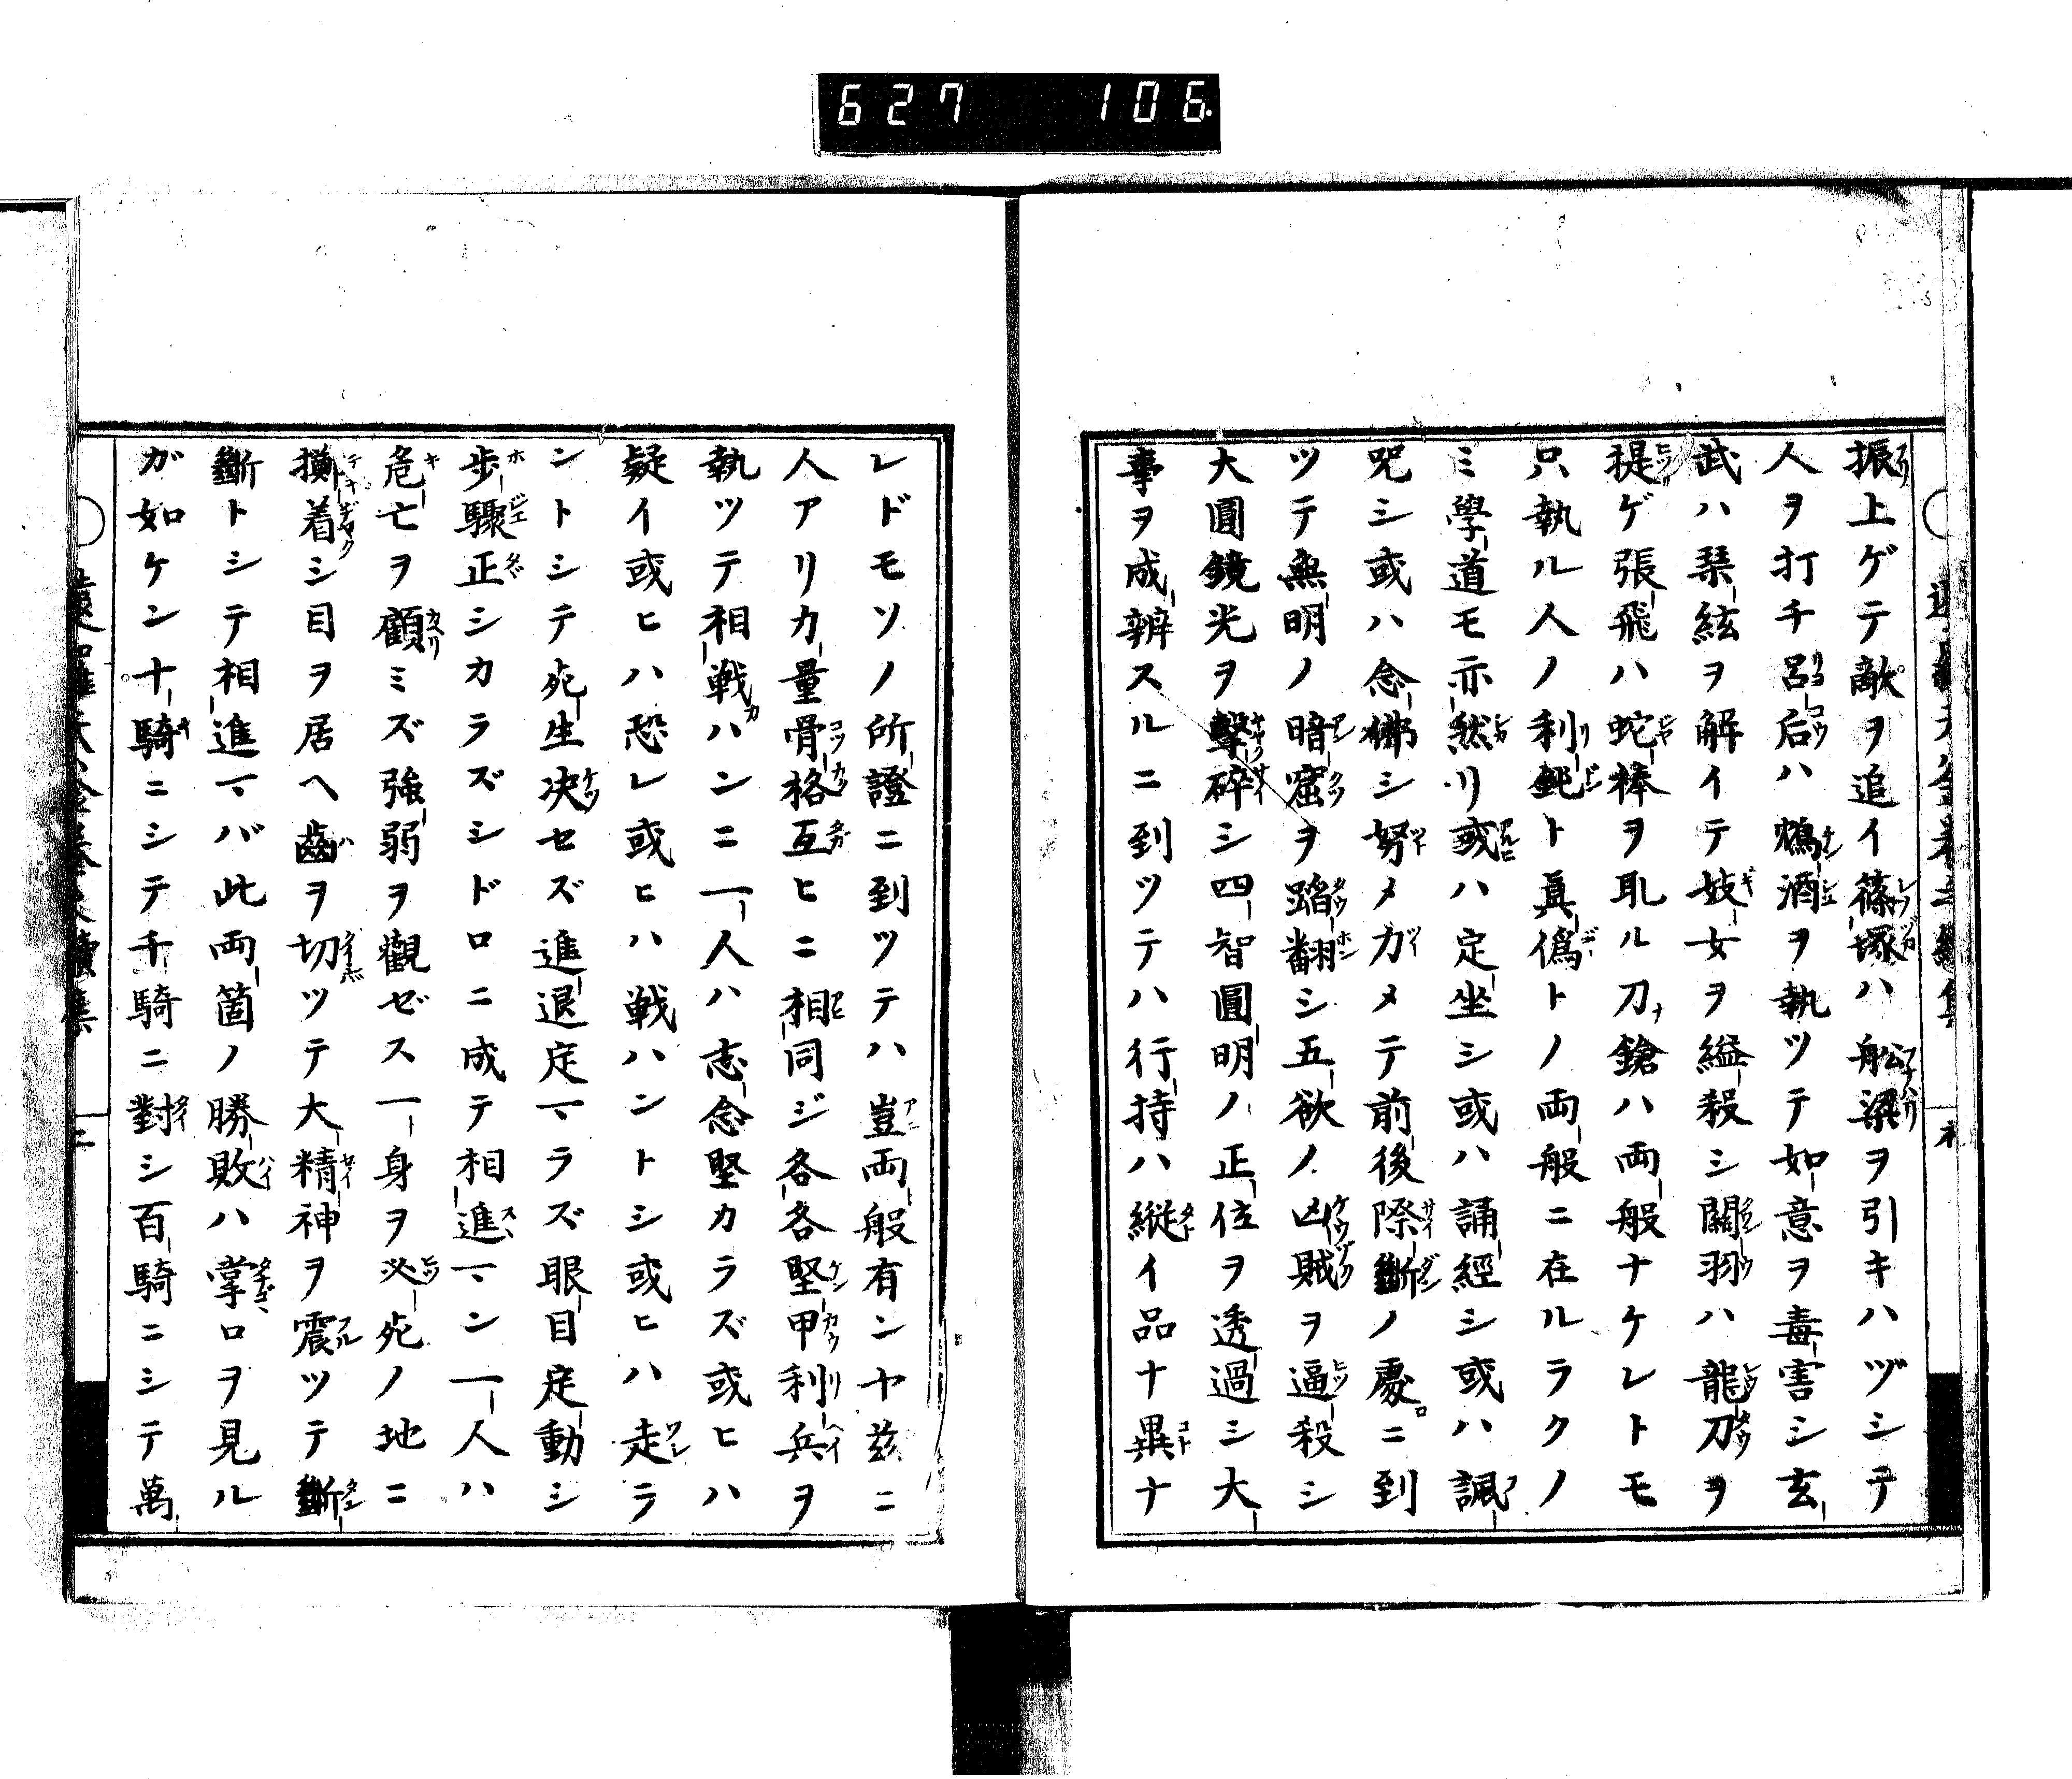 627 106
振上ゲテ敵ヲ追イ篠塚ハ舩梁ヲ引キハヅシテ
人ヲ打チ呂后ハ鴆酒ヲ執ツテ如意ヲ毒害シ玄
武ハ琴絃ヲ解イテ妓女ヲ縊殺シ關羽ハ龍刀ヲ
提ゲ張飛ハ蛇棒ヲ取ル刀鎗ハ両般ナケレトモ
只執ル人ノ利鈍ト眞偽トノ両般ニ在ルラクノ
ミ學道モ亦然リ或ハ定坐シ或ハ誦經シ或ハ諷
咒シ或ハ念佛シ努メ力メテ前後際斷ノ處ニ到
ツテ無明ノ暗窟ヲ蹈翻シ五欲ノ凶賊ヲ逼殺シ
大圓鏡光ヲ擊碎シ四智圓明ノ正位ヲ透過シ大
事ヲ成辨スルニ到ツテハ行持ハ縱イ品ナ異ナ
レドモソノ所證ニ到ツテハ豈両般有ンヤ茲ニ
人アリカ量骨格互ヒニ相同ジ各各堅甲利兵ヲ
執ツテ相戦ハンニ一人ハ志念堅カラズ或ヒハ
疑イ或ヒハ恐レ或ヒハ戦ハントシ或ヒハ走ラ
ントシテ死生决セズ進退定マラズ眼目定動シ
歩驟正シカラズシドロニ成テ相進マン一人ハ
危亡ヲ顧ミズ強弱ヲ觀ゼス一身ヲ必死ノ地ニ
擲着シ目ヲ居ヘ齒ヲ切ツテ大精神ヲ震ツテ斷
斷トシテ相進マバ此両箇ノ勝敗ハ掌ロヲ見ル
ガ如ケン十騎ニシテ千騎ニ對シ百騎ニシテ萬